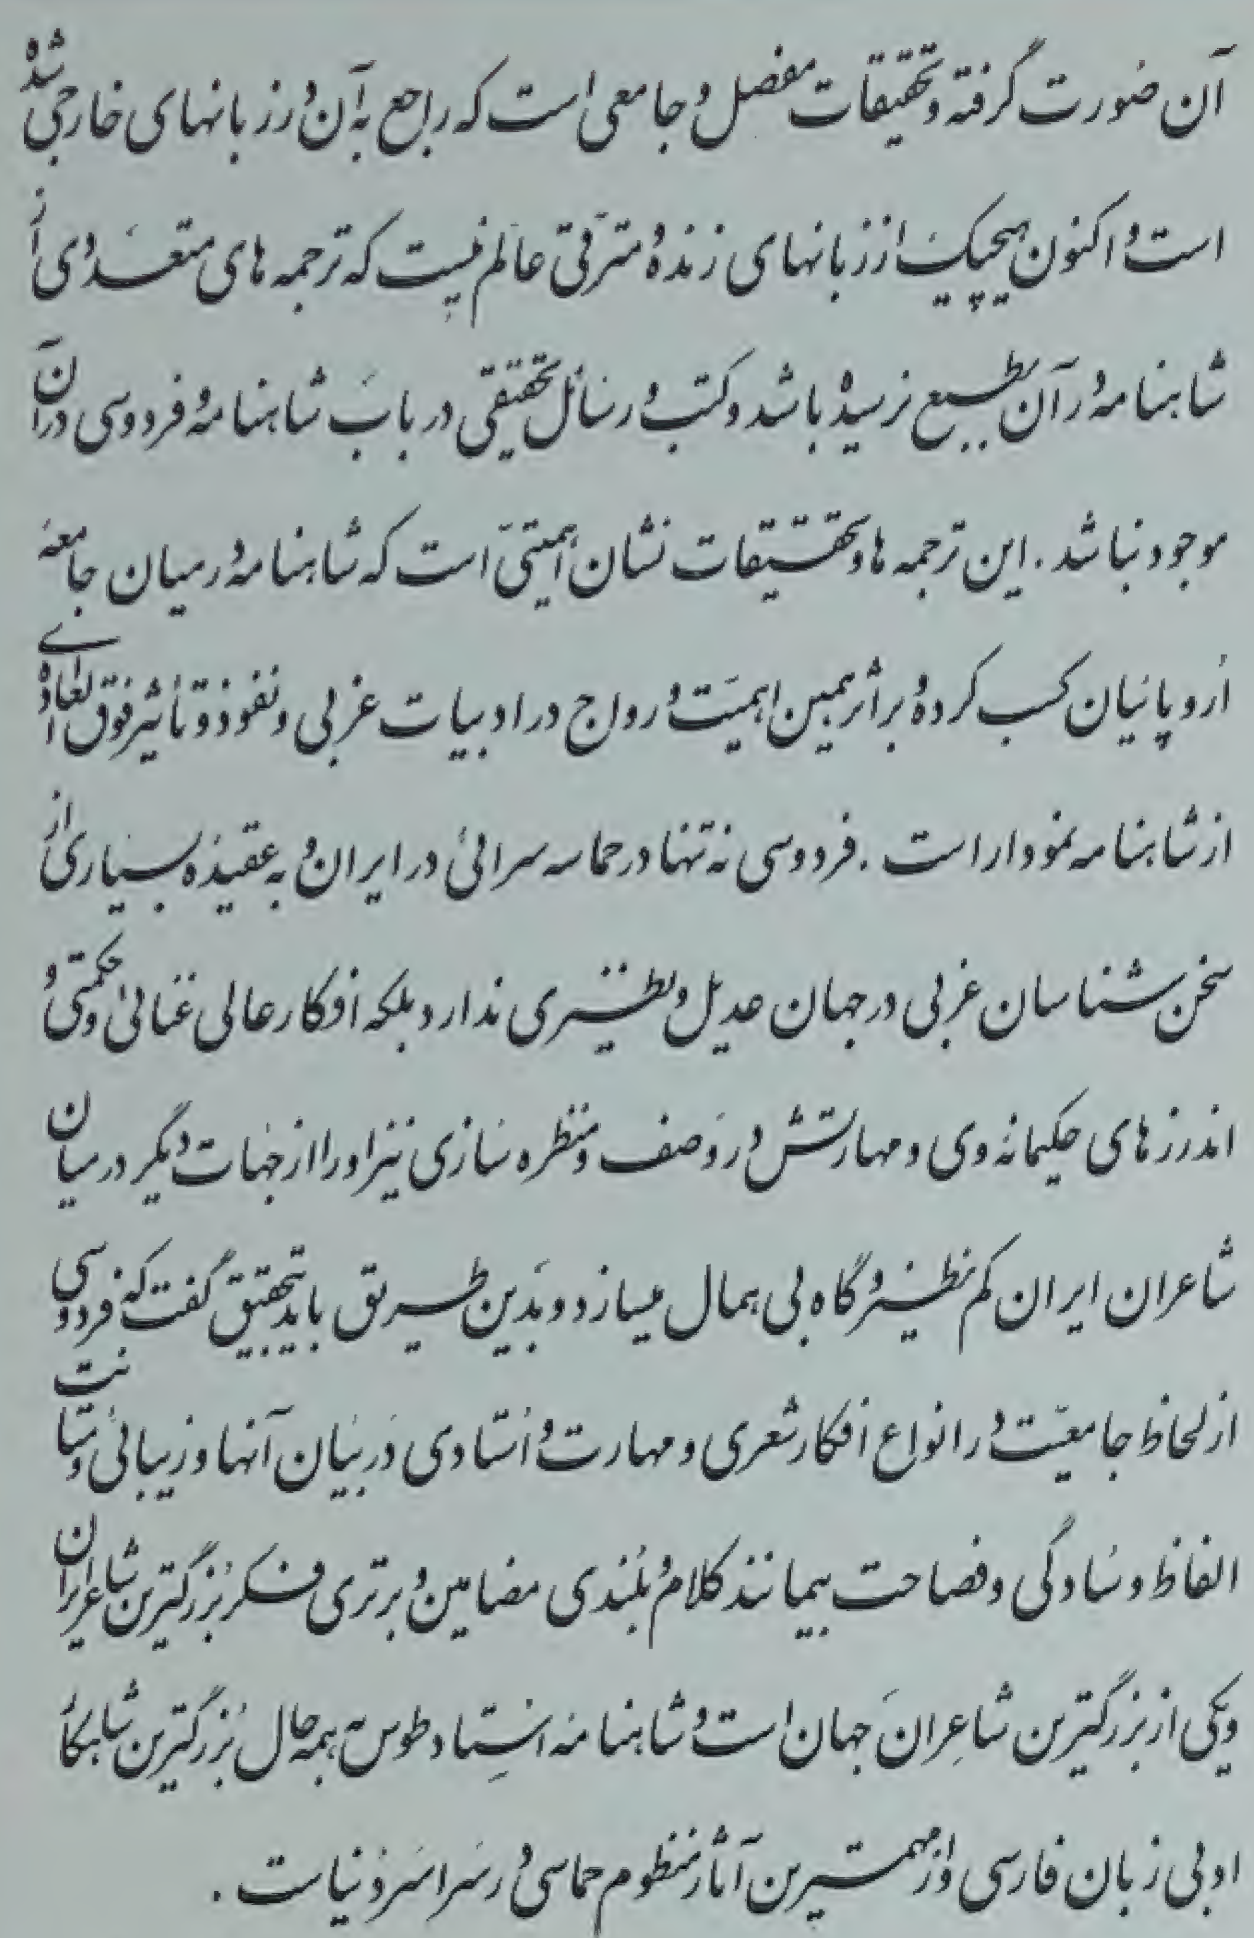 آن صورت گرفته و تحقیقات مفصل و جامعی است که راجع به آن در زبانهای خارجی شده
است و اکنون هیچیک از زبانهای زنده و مترقی عالم نیست که ترجمه های متعددی از
شاهنامه در آن بطبع نرسیده باشد و کتب و رسائل تحقیقی در باب شاهنامه فردوسی در آن
موجود نباشد. این ترجمه ها و تحقیقات نشان اهمیتی است که شاهنامه در میان جامعه
اروپائیان کسب کرده و بر اثر همین اهمیت و رواج در ادبیات غربی و نفوذ و تأثیر فوق العاده ای
از شاهنامه نمودار است. فردوسی نه تنها در حماسه سرائی در ایران و به عقیده بسیاری از
سخن شناسان غربی در جهان عدیل و نظیری ندارد بلکه افکار عالی غنائی و حکمتی و
اندرزهای حکیمانه وی و مهارتش در وصف و منظره سازی نیز او را از جهات دیگر در میان
شاعران ایران کم نظیر و گاه بی همال میسازد و بدین طریق باید بتحقیق گفت که فردوسی
از لحاظ جامعیت در انواع افکار شعری و مهارت و استادی در بیان آنها و زیبائی و متانت
الفاظ و سادگی و فصاحت بیمانند کلام و بلندی مضامین و برتری فکر بزرگترین شاعر ایران
و یکی از بزرگترین شاعران جهان است و شاهنامه استاد طوس به همه حال بزرگترین شاهکار
ادبی زبان فارسی و از مهمترین آثار منظوم حماسی در سراسر دنیاست.